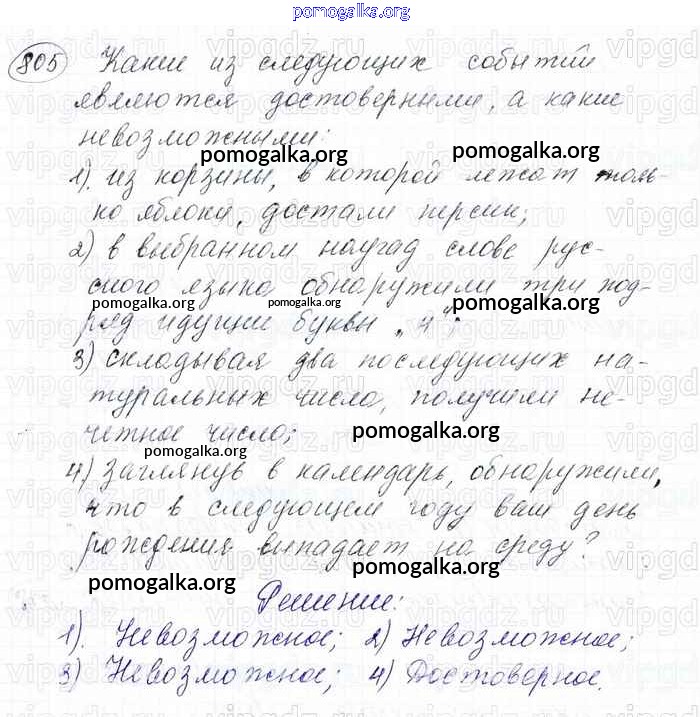 pomogalka.org
805 Какие из следующих событий
являются достоверными, а какие
невозможными:
pomogalka.org pomogalka.org
1). из корзины, в которой лежат толь-
ко яблоки, достали персик;
pomogalka.org
2) в выбранном наугад слове рус-
ского языка обнаружили три под-
pomogalka.org pomogalka.org pomogalka.org
ряд идущие буквы „ч";
3) складывая два последующих на-
туральных числа, получили не-
четное число;
pomogalka.org pomogalka.org
4) заглянув в календарь, обнаружили,
что в следующем году ваш день
рождения выпадает на среду?
pomogalka.org pomogalka.org
Решение:
1). Невозможное; 2) Невозможное;
3) Невозможное; 4) Достоверное.